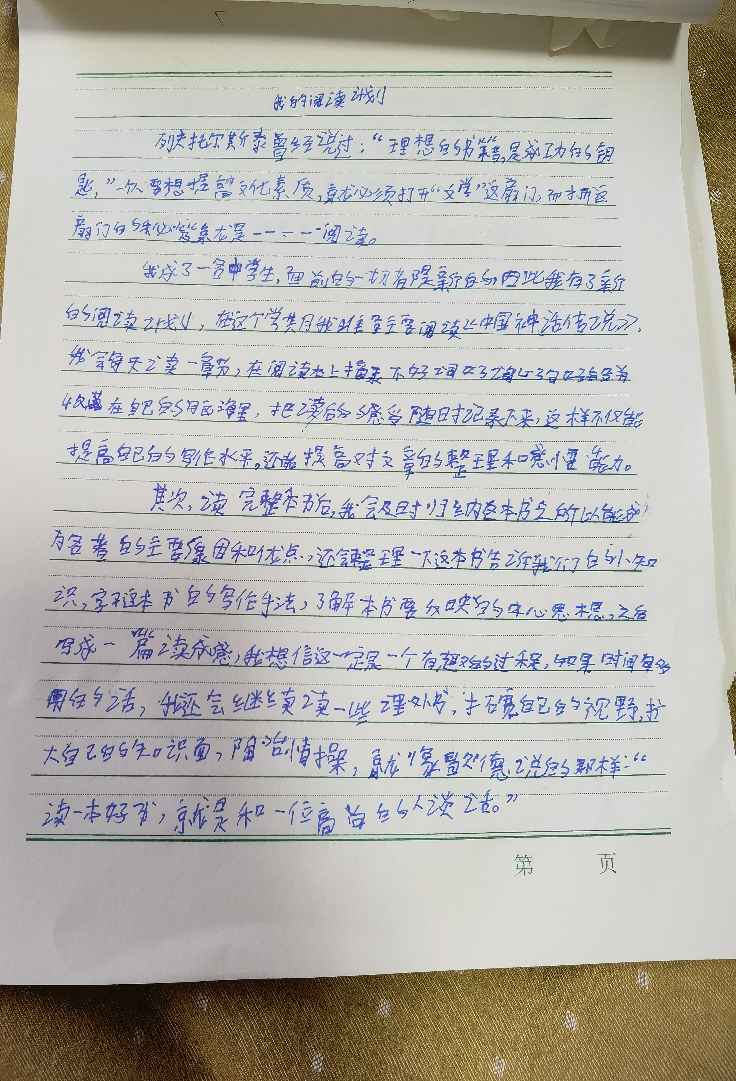 我的阅读计划
列夫托尔斯泰曾经说过：“理想的书籍，是成功的钥
匙，”一个人要想提高文化素质，就必须打开“文学”这扇门，而打开这
扇门的就是————阅读。
我成了一名中学生，面前的一切有限新的，因此我有了新
的阅读计划，在这个学期我主要阅读《中国神话传说》，
我会每天读一章节，在阅读
在自己的里，把读后的感受随时记录下来，这样不仅能
提高自己的写作水平。还能提高对文章的整理和感悟能力。
其次，读完整本书后，我会及时归纳这本书之所以能成
为名著的主要原因和优点，还会整理一下这本书告诉我们的小知
识，学习这本书的写作手法，了解本书要反映的中心思想，之后
写成一篇读后感，我想信这一定是一个有趣的过程，如果时间
的话，我还会继续读一些课外书，开拓自己的视野，扩
大自己的知识面，陶冶情操，就像歌德说的那样：“
读一本好书，就是和一位高尚的人谈话。”
第 页